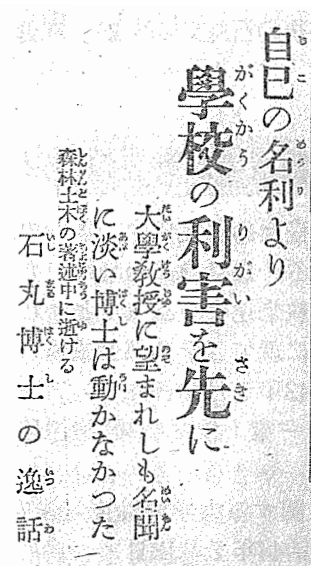 自己の名利より
學校の利害を先に
大學敎授に望まれしも名聞
に淡い博士は動かなかつた
森林土木の著述中に逝ける
石丸博士の逸話